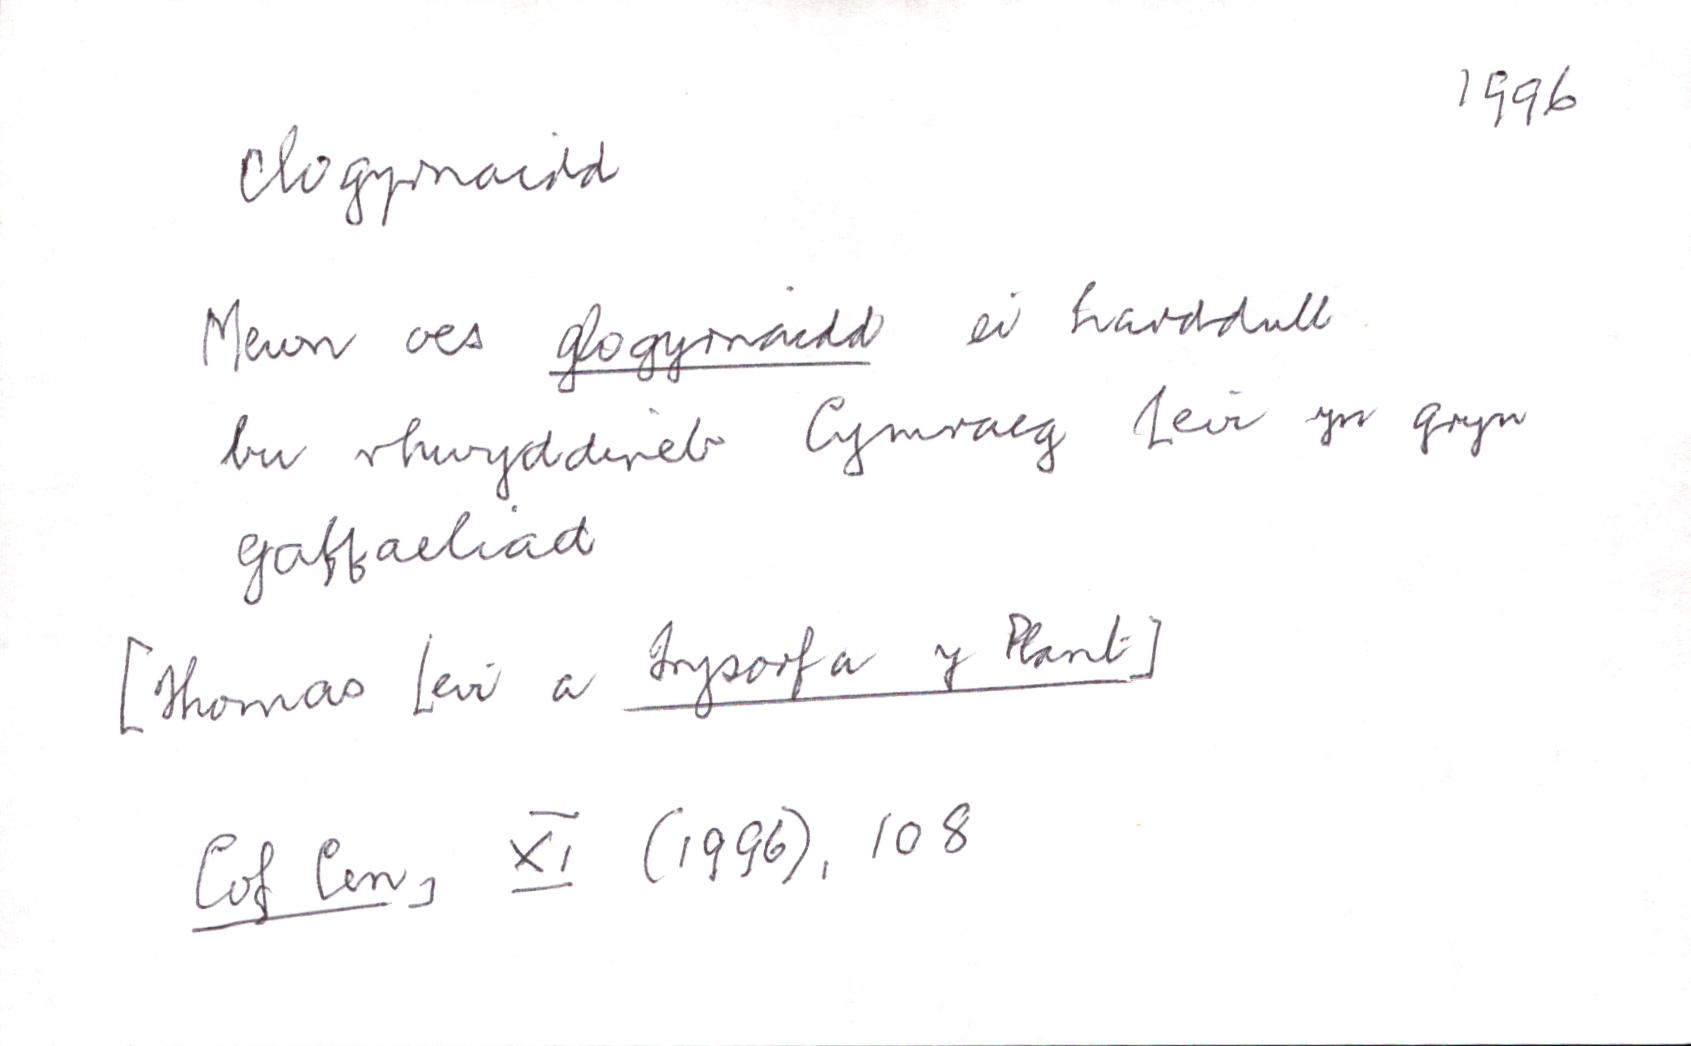 1996
clogyrnaidd
Mewn oes glogyrnaidd ei harddull
bu rhwyddineb Cymraeg Levi yn gryn
gaffaeliad
[Thomas Levi a Trysorfa y Plant]
Cof Cen, XI (1996), 108